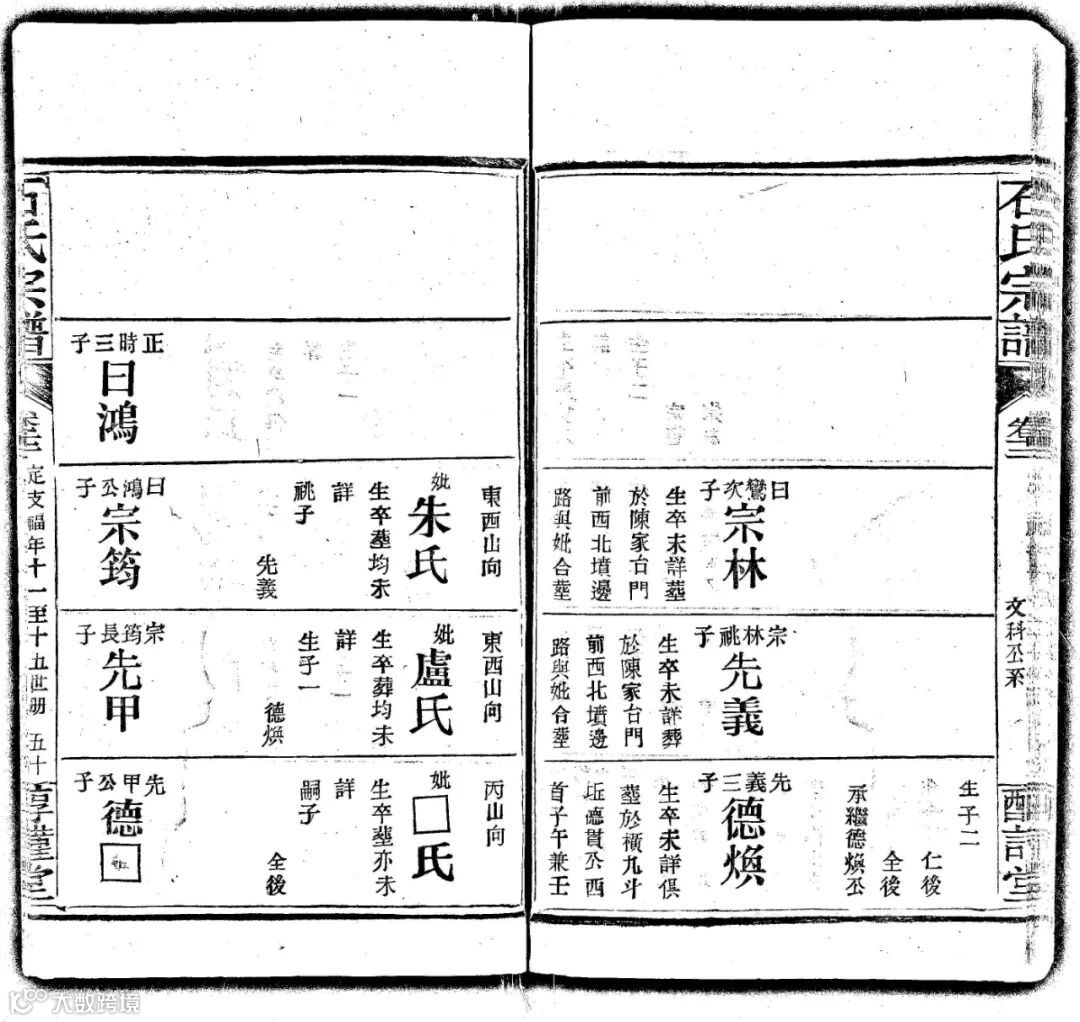 石氏宗譜
卷三
文科公系
生子二
仁後
全後
承繼德煥公
曰鸞次子
宗林
生卒未詳塟
於陳家台門
前西北墳邊
路與妣合塟
宗林祧子
先義
生卒未詳葬
於陳家台門
前西北墳邊
路與妣合塟
先義三子
德煥
生卒未詳俱
塟於橫九斗
坵德貫公西
首子午兼壬
東西山向
妣朱氏
生卒塟均未
詳
祧子
先義
東西山向
妣盧氏
生卒葬均未
詳
生子一
德煥
丙山向
妣□氏
生卒塟亦未
詳
嗣子
全後
正時三子
曰鴻
曰鴻公子
宗筠
宗筠長子
先甲
先甲公子
德□
石氏宗譜
卷三
定支福年十一至十五世册
五十
大数跨境